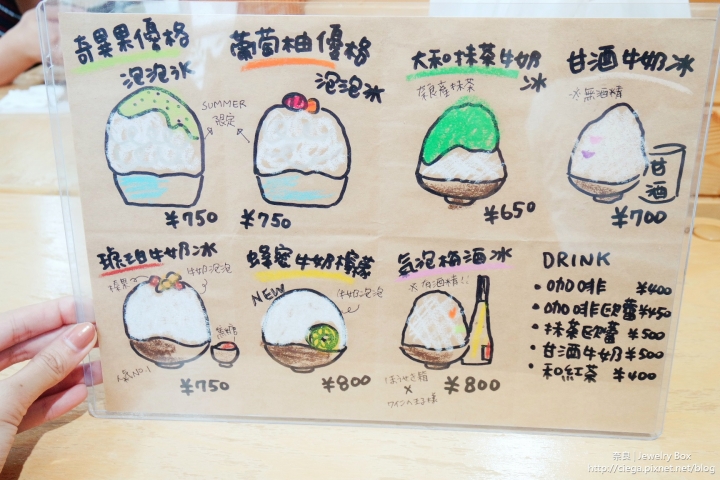 奇異果優格
泡泡冰
葡萄柚優格
泡泡冰
SUMMER
限定
¥750
¥750
大和抹茶牛奶
冰
奈良産抹茶
¥650
甘酒牛奶冰
※無酒精
甘酒
¥700
琥珀牛奶冰
榛果
牛奶泡泡
黒糖
人氣NO.1
¥750
蜂蜜牛奶檸檬
NEW
牛奶泡泡
¥800
気泡梅酒冰
※有酒精!!
ほうせき箱
×
ワインの王子様
¥800
DRINK
・咖啡 ¥400
・咖啡歐蕾 ¥450
・抹茶歐蕾 ¥500
・甘酒牛奶 ¥500
・和紅茶 ¥400
奈良 | Jewelry Box
http://ciega.pixnet.net/blog